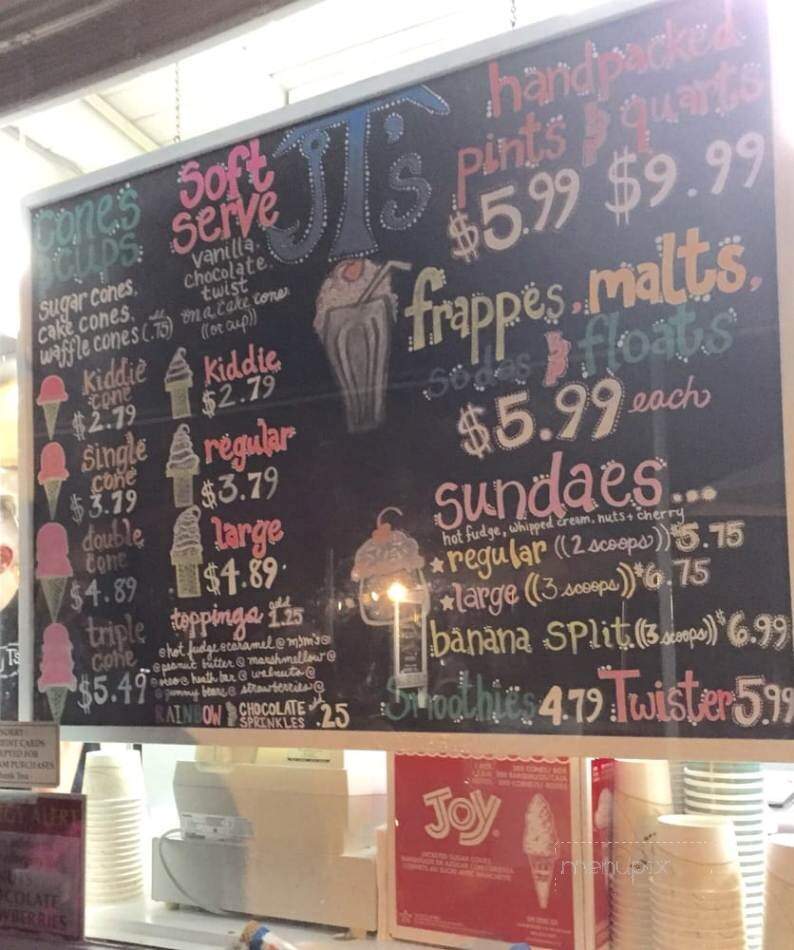 cones
& cups
sugar cones,
cake cones, add
waffle cones (.75)
kiddie
cone
$2.79
single
cone
$3.79
double
cone
$4.89
triple
cone
$5.49
Soft
Serve
vanilla
chocolate
twist
on a cake cone
(or cup)
kiddie
$2.79
regular
$3.79
large
$4.89
toppings add 1.25
hot fudge caramel m&m's
peanut butter marshmallow
oreo heath bar walnuts
gummy bears strawberries
RAINBOW & CHOCOLATE
SPRINKLES .25
JT's
handpacked
pints & quarts
$5.99 $9.99
frappes, malts,
sodas & floats
$5.99 each
sundaes...
hot fudge, whipped cream, nuts + cherry
regular ((2 scoops)) $5.75
large ((3 scoops)) $6.75
banana split ((3 scoops)) $6.99
Smoothies 4.79 Twister 5.99
SORRY
CREDIT CARDS
JOY
menupix